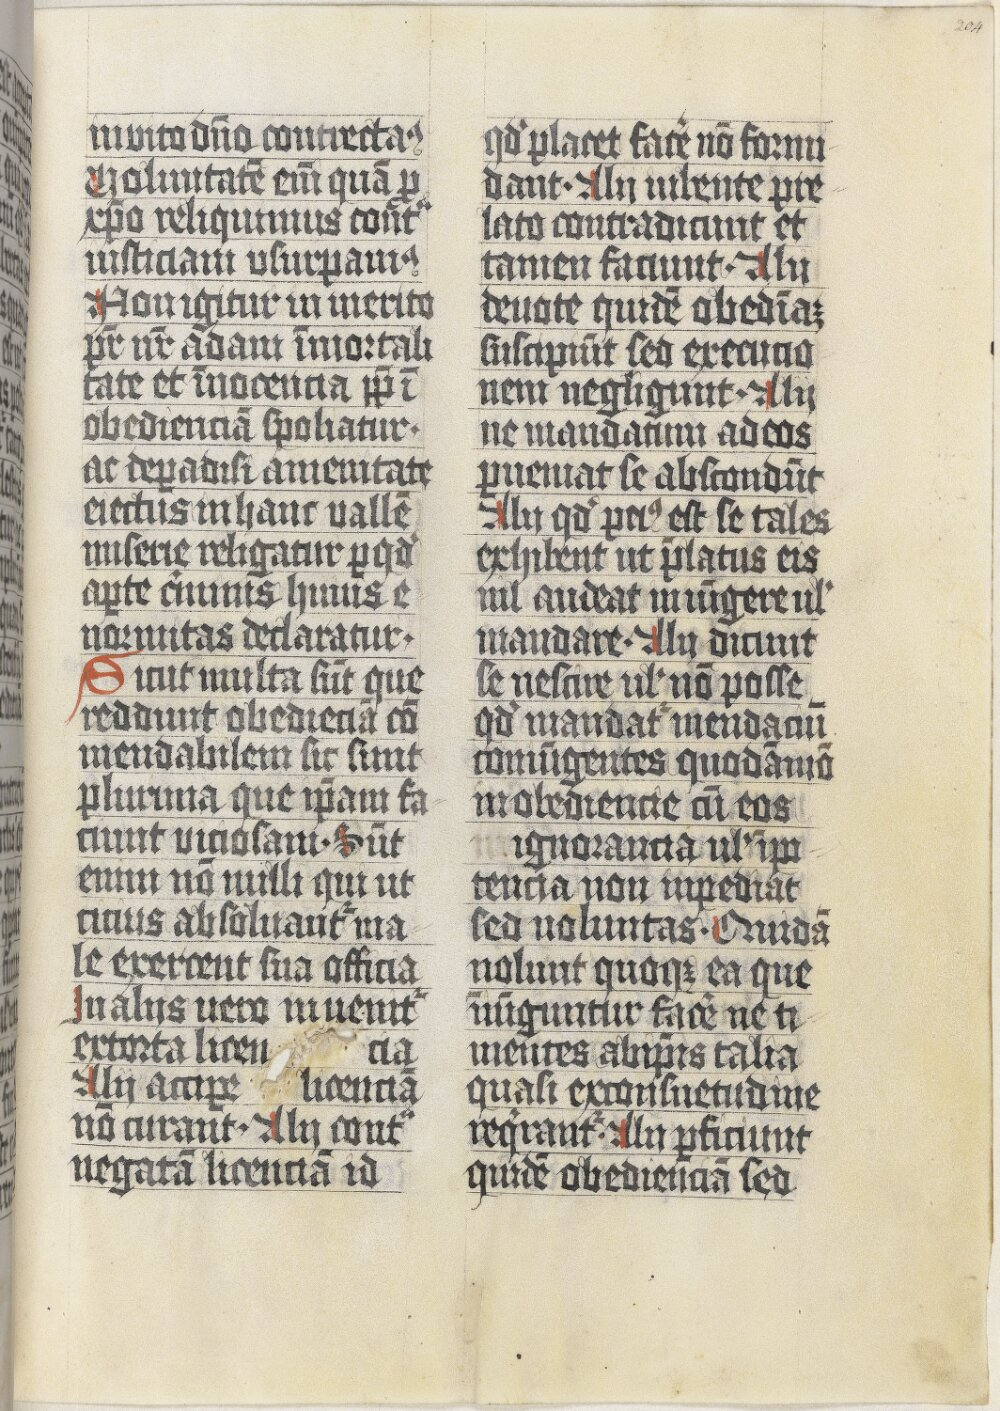 204
inuito dn̄o contrectaꝰ
Voluntatē em̄ quā ꝓ
xp̄o reliquimus cont͛ᵃ
iusticiam vsurpamꝰ
Non igitur in merito
pr̄ nr̄ adam īmortali
tate et īnocencia ꝓpt̄ ī
obedienciā spoliatur·
ac de paͣdisi amenitate
eiectus in hanc vallē
miserie religatur ꝑ qd̛
aperte cͥminis huius e
normitas declaratur·
Sicut multa sūt que
reddunt obediēciā cō
mendabilem sic sunt
plurima que ip̄am fa
ciunt viciosam· Sūt
enim nō nulli qui ut
cicius absoluant᷑ ma
le exercent sua officia
In alijs uero inuenit᷑
extorta licen cia
Alij accipe licenciā
nō curant· Alij contᵃ
negatā licenciā id
qd̛ placet face͛ nō formi
dant· Alij iubente pre
lato contradicunt et
tamen faciunt· Alij
deuote quidē obediēaꝫ
suscipiūt sed execucio
nem negligunt· Alij
ne mandatum ad eos
ꝑueniat se abscondūt
Alij qd̛ peiꝰ est se tales
exhibent ut p̄latus eis
nil audeat iniūgere ul̛
mandare· Alij dicunt
se nescire ul̛ nō posse
qd̛ mandat᷑ mendaciū
coniūgentes quodāmō
inobediencie cū eos
ignorancia ul̛ īpo
tencia non inpediāt
sed uoluntas· Quidā
nolunt quoqꝫ ea que
iniūguntur face͛ ne ti
mentes ab ip̄is talia
quasi ex consuetudine
reqͥrant᷑· Alij ꝑficiunt
quidē obedienciā sed